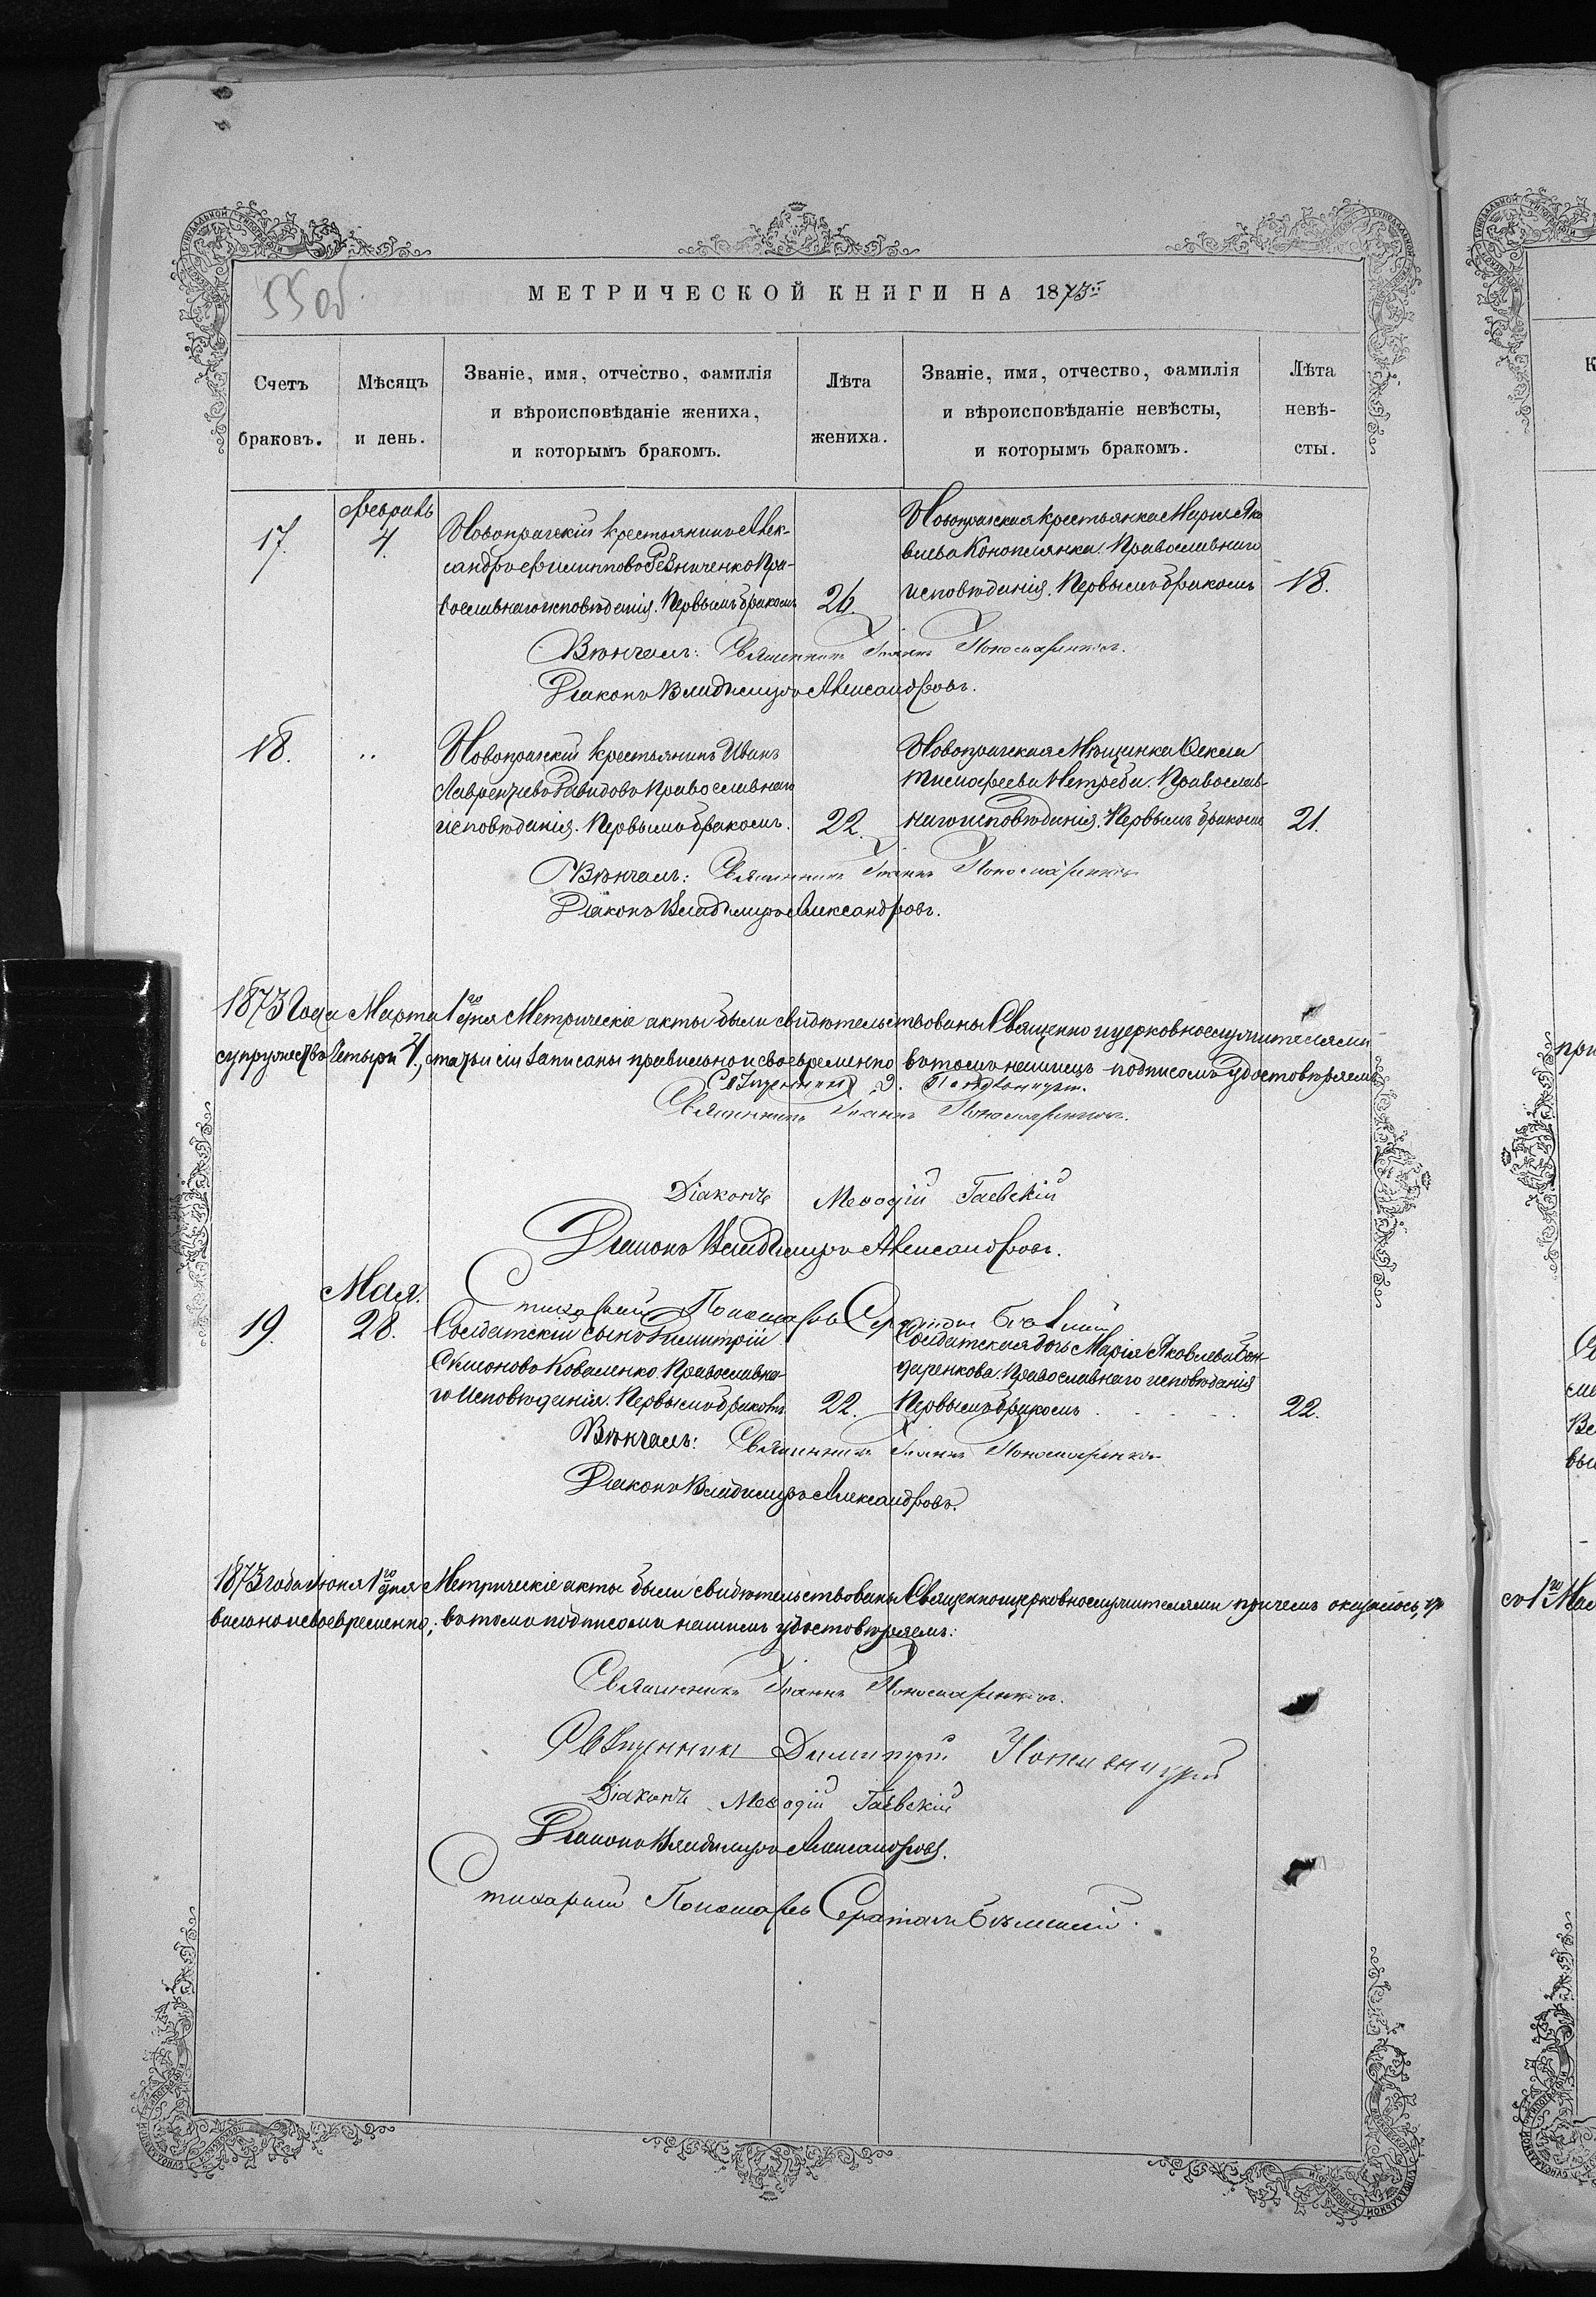 55об
МЕТРИЧЕСКОЙ КНИГИ НА 1873й
Счетъ браковъ.
Мѣсяцъ и день.
Званіе, имя, отчество, фамилія
и вѣроисповѣданіе жениха,
и которымъ бракомъ.
Лѣта жениха.
Званіе, имя, отчество, фамилія
и вѣроисповѣданіе невѣсты,
и которымъ бракомъ.
Лѣта невѣ-
сты.
Февраль
17. 4.
Новопрагскій крестьянинъ Алек-
сандръ Филипповъ Рѣзниченко Пра-
вославнаго исповѣданія. Первымъ бракомъ 26.
Новопрагская крестьянка Марія Яко
влева Коноплянка. Православнаго
исповѣданія. Первымъ бракомъ 18.
Вѣнчалъ: Священникъ Іоаннъ Пономаренковъ.
Діаконъ Владимиръ Александровъ.
18. ..
Новопрагскій крестьянинъ Иванъ
Лаврентіевъ Давидовъ Православнаго
исповѣданія. Первымъ бракомъ. 22.
Новопрагская Мѣщанка Ѳекла
Тимофеева Нетреба. Православ-
наго исповѣданія. Первымъ бракомъ 21.
Вѣнчалъ: Священникъ Іоаннъ Пономаренковъ
Діаконъ Владимиръ Александровъ.
1873 Года Марта 1го дня Метрическіе акты были свидѣтельствованы Священно и церковнослужителями
супружествъ Четыри 4, статьи сіи записаны правильно и своевременно въ томъ нашимъ подписомъ удостовѣряемъ
Священникъ Д.
Священникъ Іоаннъ Пономаренковъ.
Діаконъ Меѳодій Гаевскій
Діаконъ Владимиръ Александровъ.
Стихарный Пономарь
Мая.
19. 28.
Солдатскій сынъ Димитрій
Симоновъ Коваленко. Православна-
го Исповѣданія. Первымъ бракомъ 22.
Солдатская дочь Марія Яковлева Бон-
даренкова. Православнаго исповѣданія
Первымъ бракомъ 22.
Вѣнчалъ: Священникъ Іоаннъ Пономаренковъ
Діаконъ Владимиръ Александровъ.
1873 года Іюня 1го дня Метрическіе акты были свидѣтельствованы Священноцерковнослужителями причемъ оказалось, что
вильно и своевременно; въ томъ подписомъ нашимъ удостовѣряемъ:
Священникъ Іоаннъ Пономаренковъ.
Священникъ Димитрій
Діаконъ Меѳодій Гаевскій
Діаконъ Владимиръ Александровъ.
Стихарный Пономарь
со 1го Мая